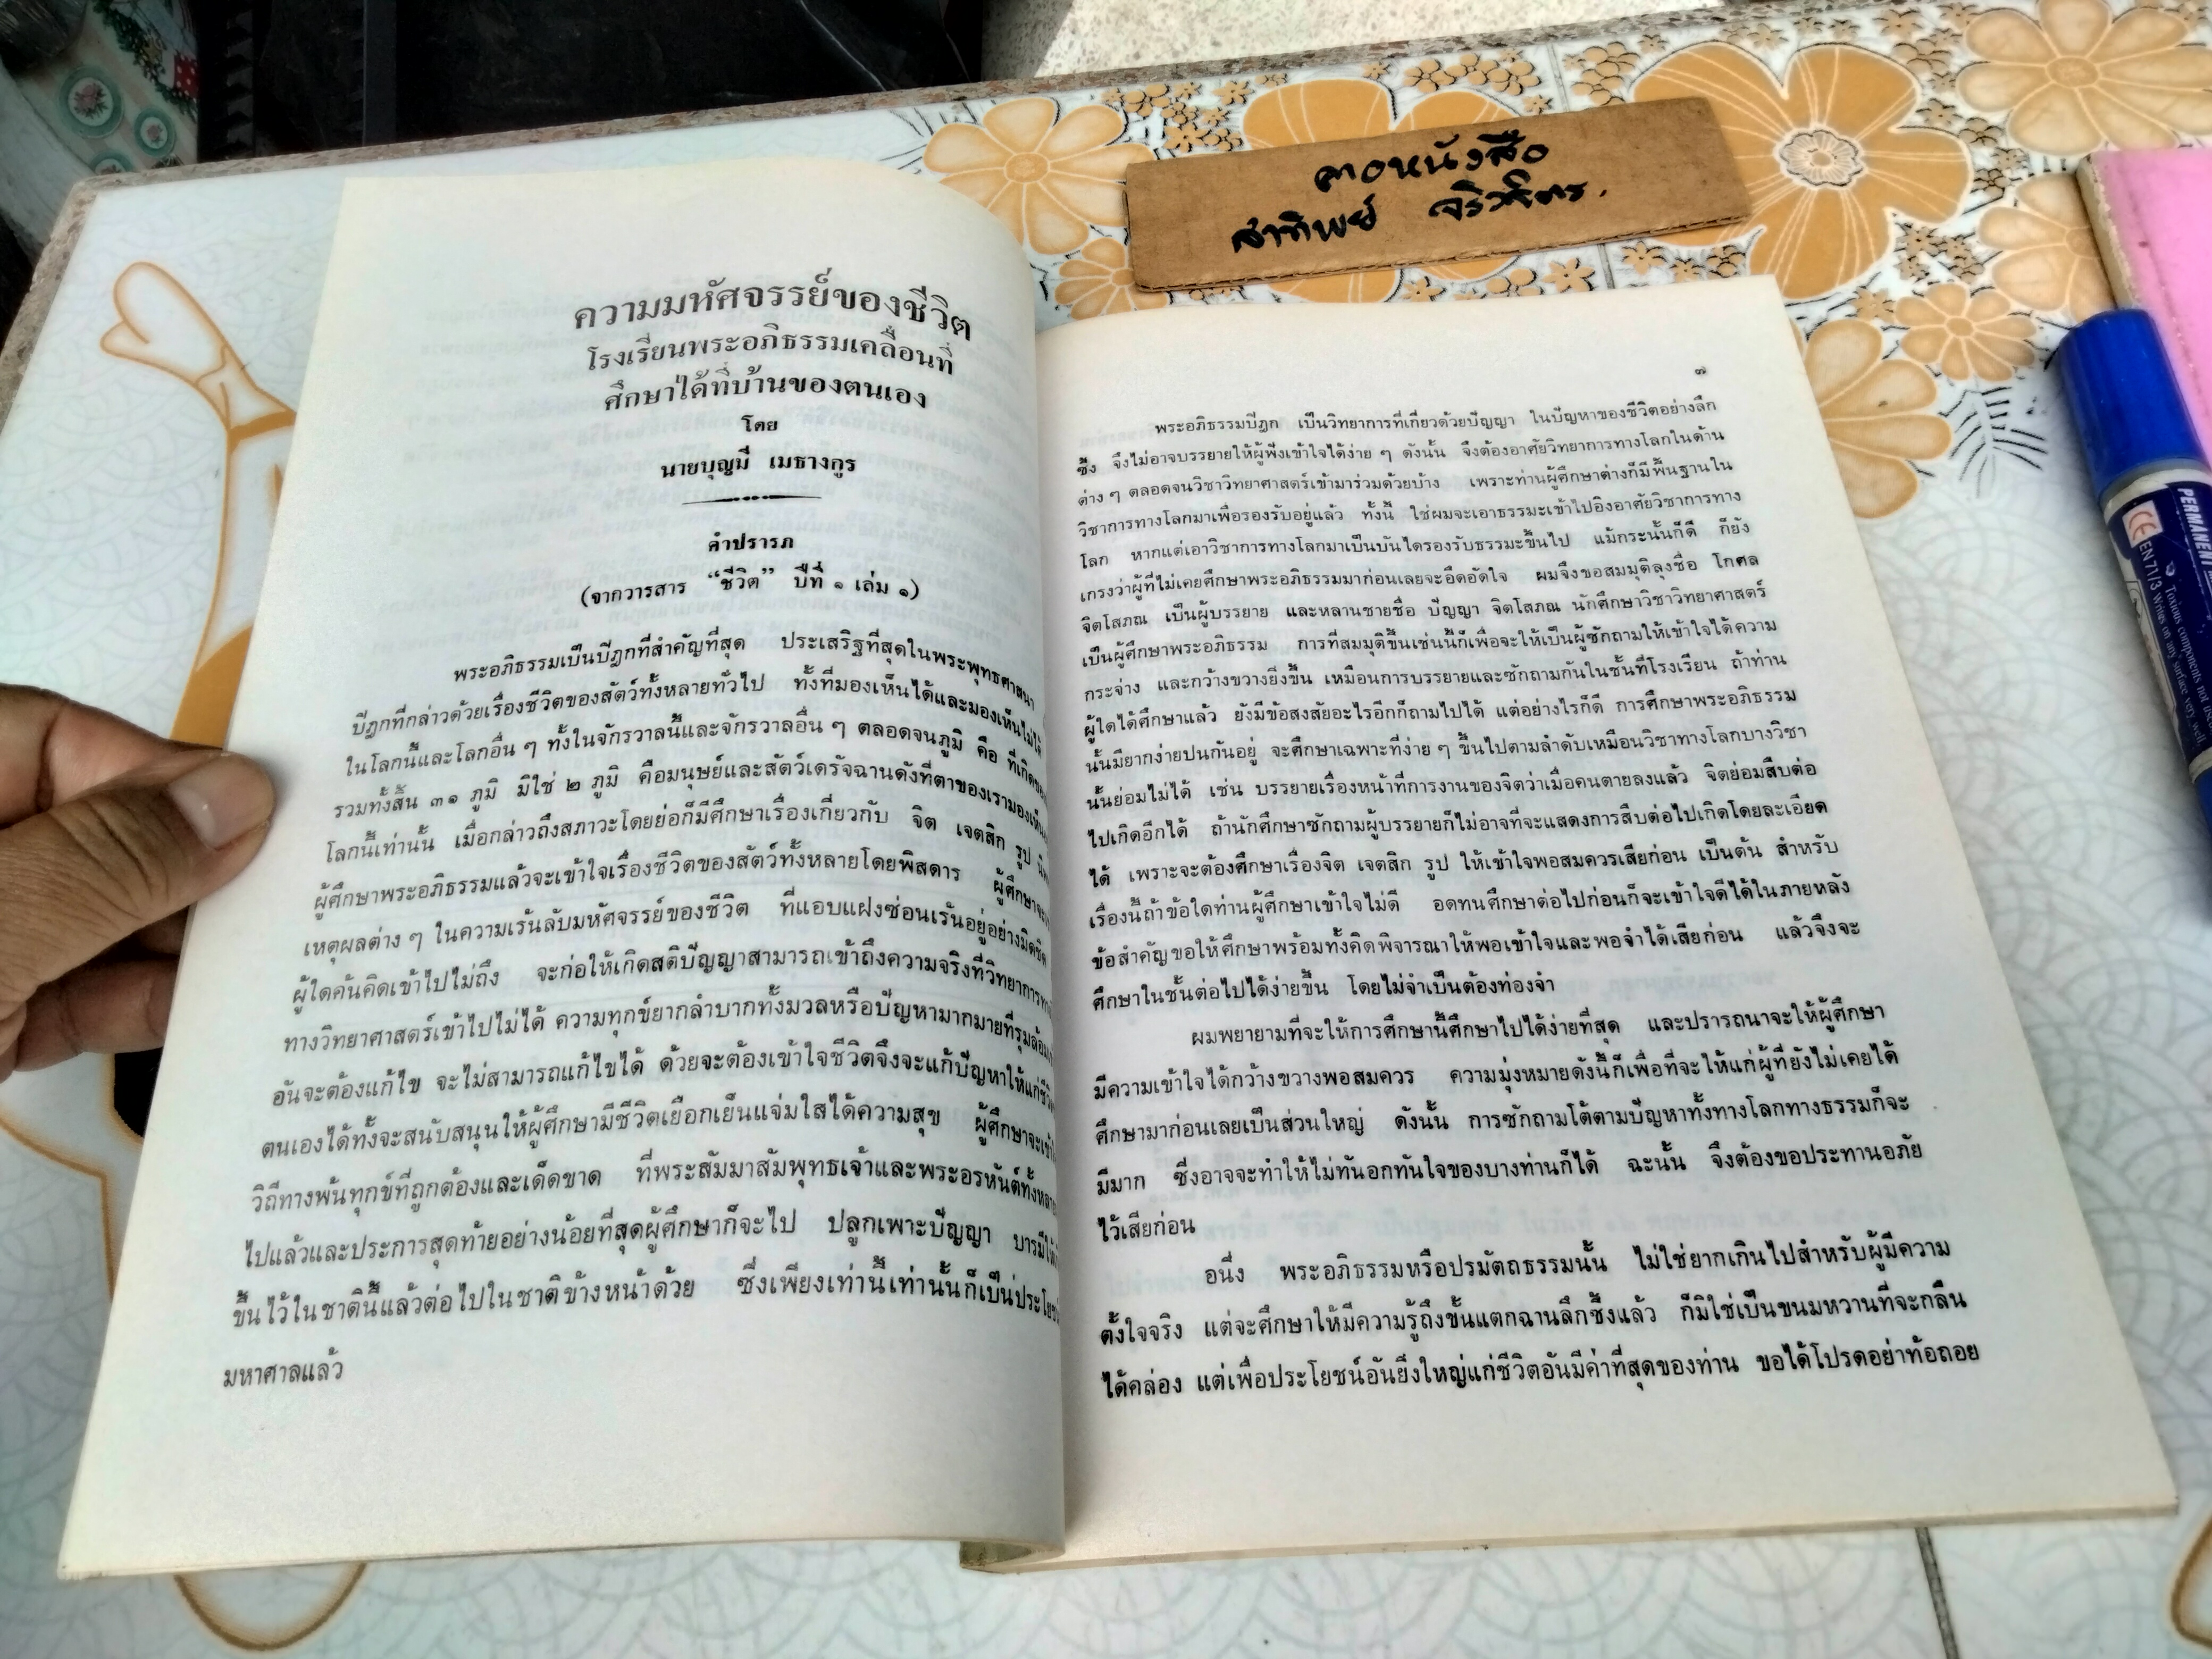 ความมหัศจรรย์ของชีวิต
โรงเรียนพระอภิธรรมเคลื่อนที่
ศึกษาได้ที่บ้านของตนเอง
โดย
นายบุญมี เมธางกูร
คำปรารภ
(จากวารสาร “ชีวิต” ปีที่ ๑ เล่ม ๑)
พระอภิธรรมเป็นปิฎกที่สำคัญที่สุด ประเสริฐที่สุดในพระพุทธศาสนา
ปิฎกที่กล่าวด้วยเรื่องชีวิตของสัตว์ทั้งหลายทั่วไป ทั้งที่มองเห็นได้และมองเห็นไม่ได้
ในโลกนี้และโลกอื่น ๆ ทั้งในจักรวาลนี้และจักรวาลอื่น ๆ ตลอดจนภูมิ คือ
รวมทั้งสิ้น ๓๑ ภูมิ มิใช่ ๒ ภูมิ คือมนุษย์และสัตว์เดรัจฉานดังที่ตาของเรามองเห็น
โลกนี้เท่านั้น เมื่อกล่าวถึงสภาวะโดยย่อก็มีศึกษาเรื่องเกี่ยวกับ จิต เจตสิก รูป
ผู้ศึกษาพระอภิธรรมแล้วจะเข้าใจเรื่องชีวิตของสัตว์ทั้งหลายโดยพิสดาร ผู้ศึกษาจะ
เหตุผลต่าง ๆ ในความเร้นลับมหัศจรรย์ของชีวิต ที่แอบแฝงซ่อนเร้นอยู่อย่างมิดชิด
ผู้ใดค้นคิดเข้าไปไม่ถึง จะก่อให้เกิดสติปัญญาสามารถเข้าถึงความจริงที่วิทยาการ
ทางวิทยาศาสตร์เข้าไปไม่ได้ ความทุกข์ยากลำบากทั้งมวลหรือปัญหามากมายที่รุมล้อม
อันจะต้องแก้ไข จะไม่สามารถแก้ไขได้ ด้วยจะต้องเข้าใจชีวิตจึงจะแก้ปัญหาให้แก่
ตนเองได้ทั้งจะสนับสนุนให้ผู้ศึกษามีชีวิตเยือกเย็นแจ่มใสได้ความสุข ผู้ศึกษาจะ
วิถีทางพ้นทุกข์ที่ถูกต้องและเด็ดขาด ที่พระสัมมาสัมพุทธเจ้าและพระอรหันต์
ไปแล้วและประการสุดท้ายอย่างน้อยที่สุดผู้ศึกษาก็จะไป ปลูกเพาะปัญญา บารมี
ขึ้นไว้ในชาตินี้แล้วต่อไปในชาติข้างหน้าด้วย ซึ่งเพียงเท่านี้เท่านั้นก็เป็น
มหาศาลแล้ว
๗
พระอภิธรรมปิฎก เป็นวิทยาการที่เกี่ยวด้วยปัญญา ในปัญหาของชีวิตอย่างลึก
ซึ้ง จึงไม่อาจบรรยายให้ผู้ฟังเข้าใจได้ง่าย ๆ ดังนั้น จึงต้องอาศัยวิทยาการทางโลกในด้าน
ต่าง ๆ ตลอดจนวิชาวิทยาศาสตร์เข้ามาร่วมด้วยบ้าง เพราะท่านผู้ศึกษาต่างก็มีพื้นฐานใน
วิชาการทางโลกมาเพื่อรองรับอยู่แล้ว ทั้งนี้ ใช่ผมจะเอาธรรมะเข้าไปอิงอาศัยวิชาการทาง
โลก หากแต่เอาวิชาการทางโลกมาเป็นบันไดรองรับธรรมะขึ้นไป แม้กระนั้นก็ดี ก็ยัง
เกรงว่าผู้ที่ไม่เคยศึกษาพระอภิธรรมมาก่อนเลยจะอึดอัดใจ ผมจึงขอสมมุติลุงชื่อ โกศล
จิตโสภณ เป็นผู้บรรยาย และหลานชายชื่อ ปัญญา จิตโสภณ นักศึกษาวิชาวิทยาศาสตร์
เป็นผู้ศึกษาพระอภิธรรม การที่สมมุติขึ้นเช่นนี้ก็เพื่อจะให้เป็นผู้ซักถามให้เข้าใจได้ความ
กระจ่าง และกว้างขวางยิ่งขึ้น เหมือนการบรรยายและซักถามกันในชั้นที่โรงเรียน ถ้าท่าน
ผู้ใดได้ศึกษาแล้ว ยังมีข้อสงสัยอะไรอีกก็ถามไปได้ แต่อย่างไรก็ดี การศึกษาพระอภิธรรม
นั้นมียากง่ายปนกันอยู่ จะศึกษาเฉพาะที่ง่าย ๆ ขึ้นไปตามลำดับเหมือนวิชาทางโลกบางวิชา
นั้นย่อมไม่ได้ เช่น บรรยายเรื่องหน้าที่การงานของจิตว่าเมื่อคนตายลงแล้ว จิตย่อมสืบต่อ
ไปเกิดอีกได้ ถ้านักศึกษาซักถามผู้บรรยายก็ไม่อาจที่จะแสดงการสืบต่อไปเกิดโดยละเอียด
ได้ เพราะจะต้องศึกษาเรื่องจิต เจตสิก รูป ให้เข้าใจพอสมควรเสียก่อน เป็นต้น สำหรับ
เรื่องนี้ถ้าข้อใดท่านผู้ศึกษาเข้าใจไม่ดี อดทนศึกษาต่อไปก่อนก็จะเข้าใจดีได้ในภายหลัง
ข้อสำคัญขอให้ศึกษาพร้อมทั้งคิดพิจารณาให้พอเข้าใจและพอจำได้เสียก่อน แล้วจึงจะ
ศึกษาในชั้นต่อไปได้ง่ายขึ้น โดยไม่จำเป็นต้องท่องจำ
ผมพยายามที่จะให้การศึกษานี้ศึกษาไปได้ง่ายที่สุด และปรารถนาจะให้ผู้ศึกษา
มีความเข้าใจได้กว้างขวางพอสมควร ความมุ่งหมายดังนี้ก็เพื่อที่จะให้แก่ผู้ที่ยังไม่เคยได้
ศึกษามาก่อนเลยเป็นส่วนใหญ่ ดังนั้น การซักถามโต้ตามปัญหาทั้งทางโลกทางธรรมก็จะ
มีมาก ซึ่งอาจจะทำให้ไม่ทันอกทันใจของบางท่านก็ได้ ฉะนั้น จึงต้องขอประทานอภัย
ไว้เสียก่อน
อนึ่ง พระอภิธรรมหรือปรมัตถธรรมนั้น ไม่ใช่ยากเกินไปสำหรับผู้มีความ
ตั้งใจจริง แต่จะศึกษาให้มีความรู้ถึงขั้นแตกฉานลึกซึ้งแล้ว ก็มิใช่เป็นขนมหวานที่จะกลืน
ได้คล่อง แต่เพื่อประโยชน์อันยิ่งใหญ่แก่ชีวิตอันมีค่าที่สุดของท่าน ขอได้โปรดอย่าท้อถอย
หนังสือ
PERMANENT
CE EN 71/3 Writes on any surface very well